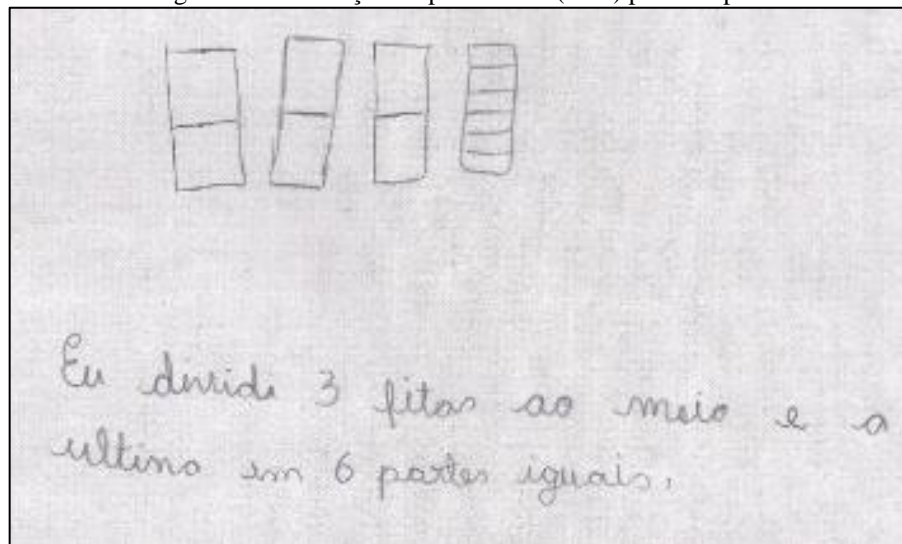 Eu dividi 3 fitas ao meio e a
ultima em 6 partes iguais.